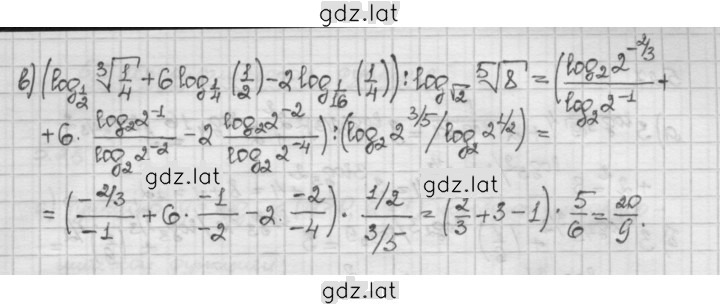 gdz.lat
в) (log_{1/2} ∛(1/4) + 6 log_{1/4} (1/2) - 2 log_{1/16} (1/4)) : log_{√2} ⁵√8 = (log₂ 2^{-2/3} / log₂ 2^{-1} +
+ 6 · log₂ 2^{-1} / log₂ 2^{-2} - 2 log₂ 2^{-2} / log₂ 2^{-4}) : (log₂ 2^{3/5} / log₂ 2^{1/2}) =
gdz.lat gdz.lat
= (-2/3 / -1 + 6 · -1 / -2 - 2 · -2 / -4) · 1/2 / 3/5 = (2/3 + 3 - 1) · 5/6 = 20/9.
gdz.lat